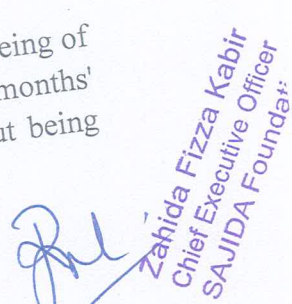 eing of
months'
ut being
Zahida Fizza Kabir
Chief Executive Officer
SAJIDA Foundati